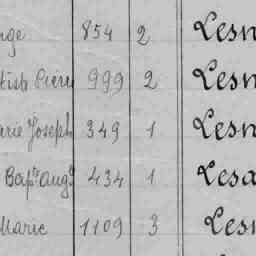 nge 854 2 Lesn
tiste Pierre 999 2 Lesn
arie Joseph 349 1 Lesn
Bapte augte 434 1 Lesa
Marie 1109 3 Lesn